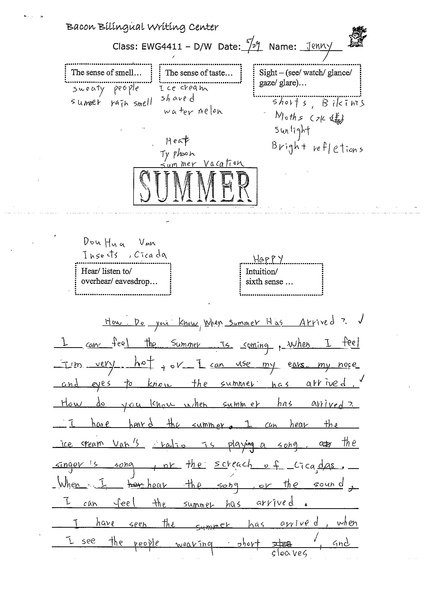 Bacon Bilingual Writing Center
Class: EWG4411 – D/W Date: 5/29 Name: Jenny
The sense of smell… The sense of taste… Sight – (see/ watch/ glance/ gaze/ glare)…
sweaty people
summer rain smell
Ice cream
shaved
water melon
shorts, Bikinis
Moths
Sunlight
Bright refletions
Heat
Typhoon
Summer Vacation
SUMMER
Dou Hua Van
Insects, Cicada
Happy
Hear/ listen to/ overhear/ eavesdrop…
Intuition/ sixth sense …
How Do you Know When Summer Has Arrived?
I can feel the Summer is coming, when I feel
I'm very hot, or I can use my ears my nose
and eyes to know the summer has arrived.
How do you know when summer has arrived?
I have heard the summer. I can hear the
ice cream Van's radio is playing a song, the
singer's song, or the screach of Cicadas.
When I hear the song or the sound,
I can feel the summer has arrived.
I have seen the summer has arrived, when
I see the people wearing short sloaves, and